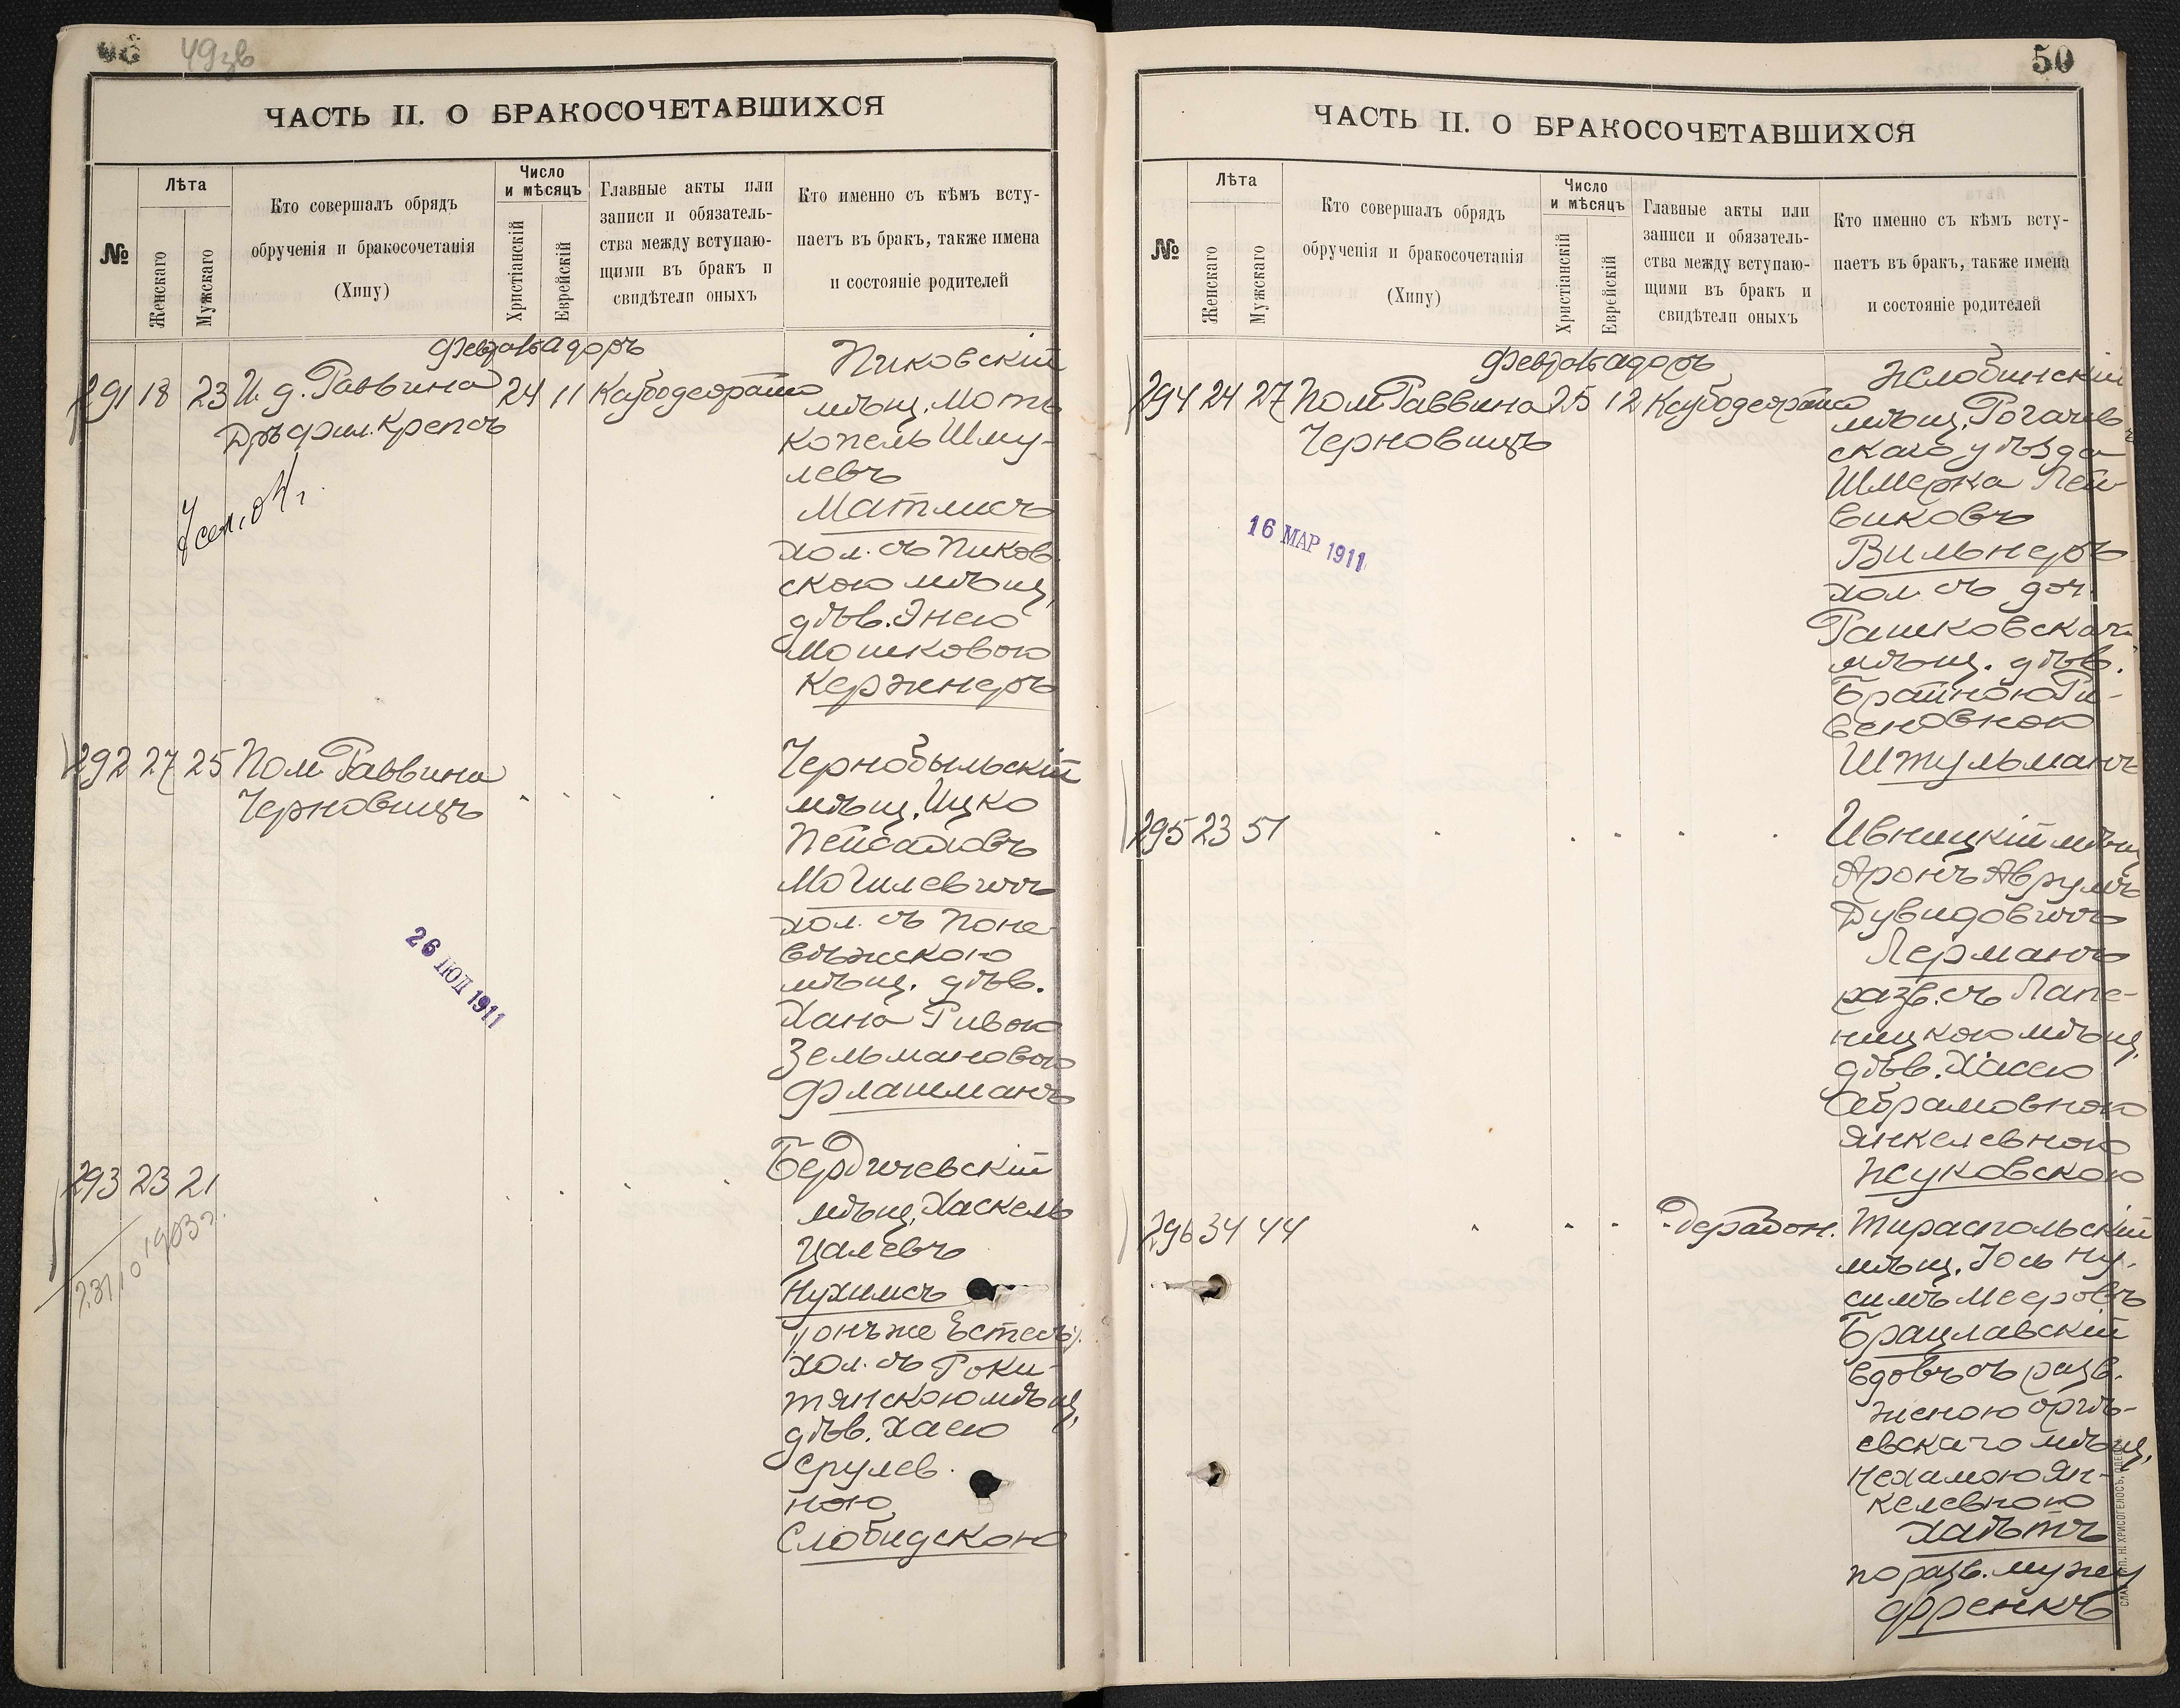 49 зв
ЧАСТЬ II. О БРАКОСОЧЕТАВШИХСЯ
№
Лѣта
Женскаго
Мужскаго
Кто совершалъ обрядъ
обрученія и бракосочетанія
(Хипу)
Число
и мѣсяцъ
Христіанскій
Еврейскій
Главные акты или
записи и обязатель-
ства между вступаю-
щими въ бракъ и
свидѣтели оныхъ
Кто именно съ кѣмъ всту-
паетъ въ бракъ, также имена
и состояніе родителей
Февраль Адаръ
291 18 23 И. д. Раввина 24 11
Дръ фил. Крепсъ
Пиковскій
мѣщ. Мотъ
Копель Шму-
левъ
Матлисъ
хол. съ Пиков-
скою мѣщ.
дѣв. Энею
Мошковою
Кержнеръ
292 27 25 Пом. Раввина
Черновицъ
Чернобыльскій
мѣщ. Ицко
Пейсаховъ
Могилевичъ
хол. съ Поне-
вѣжскою
мѣщ. дѣв.
Хана Ривою
Зельмановою
Флашманъ
26 1911
293 23 21
1903 г.
Бердичевскій
мѣщ. Хаскель
Цалевъ
Нухимсъ
(онъ же Естесъ)
хол. съ Роки-
тянскою мѣщ.
дѣв. Хаею
Срулев-
ною
Слободскою
50
ЧАСТЬ II. О БРАКОСОЧЕТАВШИХСЯ
№
Лѣта
Женскаго
Мужскаго
Кто совершалъ обрядъ
обрученія и бракосочетанія
(Хипу)
Число
и мѣсяцъ
Христіанскій
Еврейскій
Главные акты или
записи и обязатель-
ства между вступаю-
щими въ бракъ и
свидѣтели оныхъ
Кто именно съ кѣмъ всту-
паетъ въ бракъ, также имена
и состояніе родителей
Февраль Адаръ
294 24 27 Пом. Раввина 25 12
Черновицъ
Жлобинскій
мѣщ. Рогачев-
скаго уѣзда
Шмерка Лей-
виковъ
Вильнеръ
хол. съ доч.
Рашковскаго
мѣщ. дѣв.
Брайною Ру-
веновною
Штульманъ
16 МАР 1911
295 23 51
Ивницкій мѣщ.
Аронъ Аврумъ
Дувидовичъ
Лерманъ
разв. съ Лапе-
ницкою мѣщ.
дѣв. Хасею
Абрамовною
Янкелевною
Жуковскою
296 34 44 Дерабон. Тираспольскій
мѣщ. Іось Ну-
симъ Мееровъ
Брацлавскій
вдовъ съ разв.
женою Оргѣ-
евскаго мѣщ.
Нехамою Ян-
келевною
Хаѣтъ
по разв. мужу
Френкъ